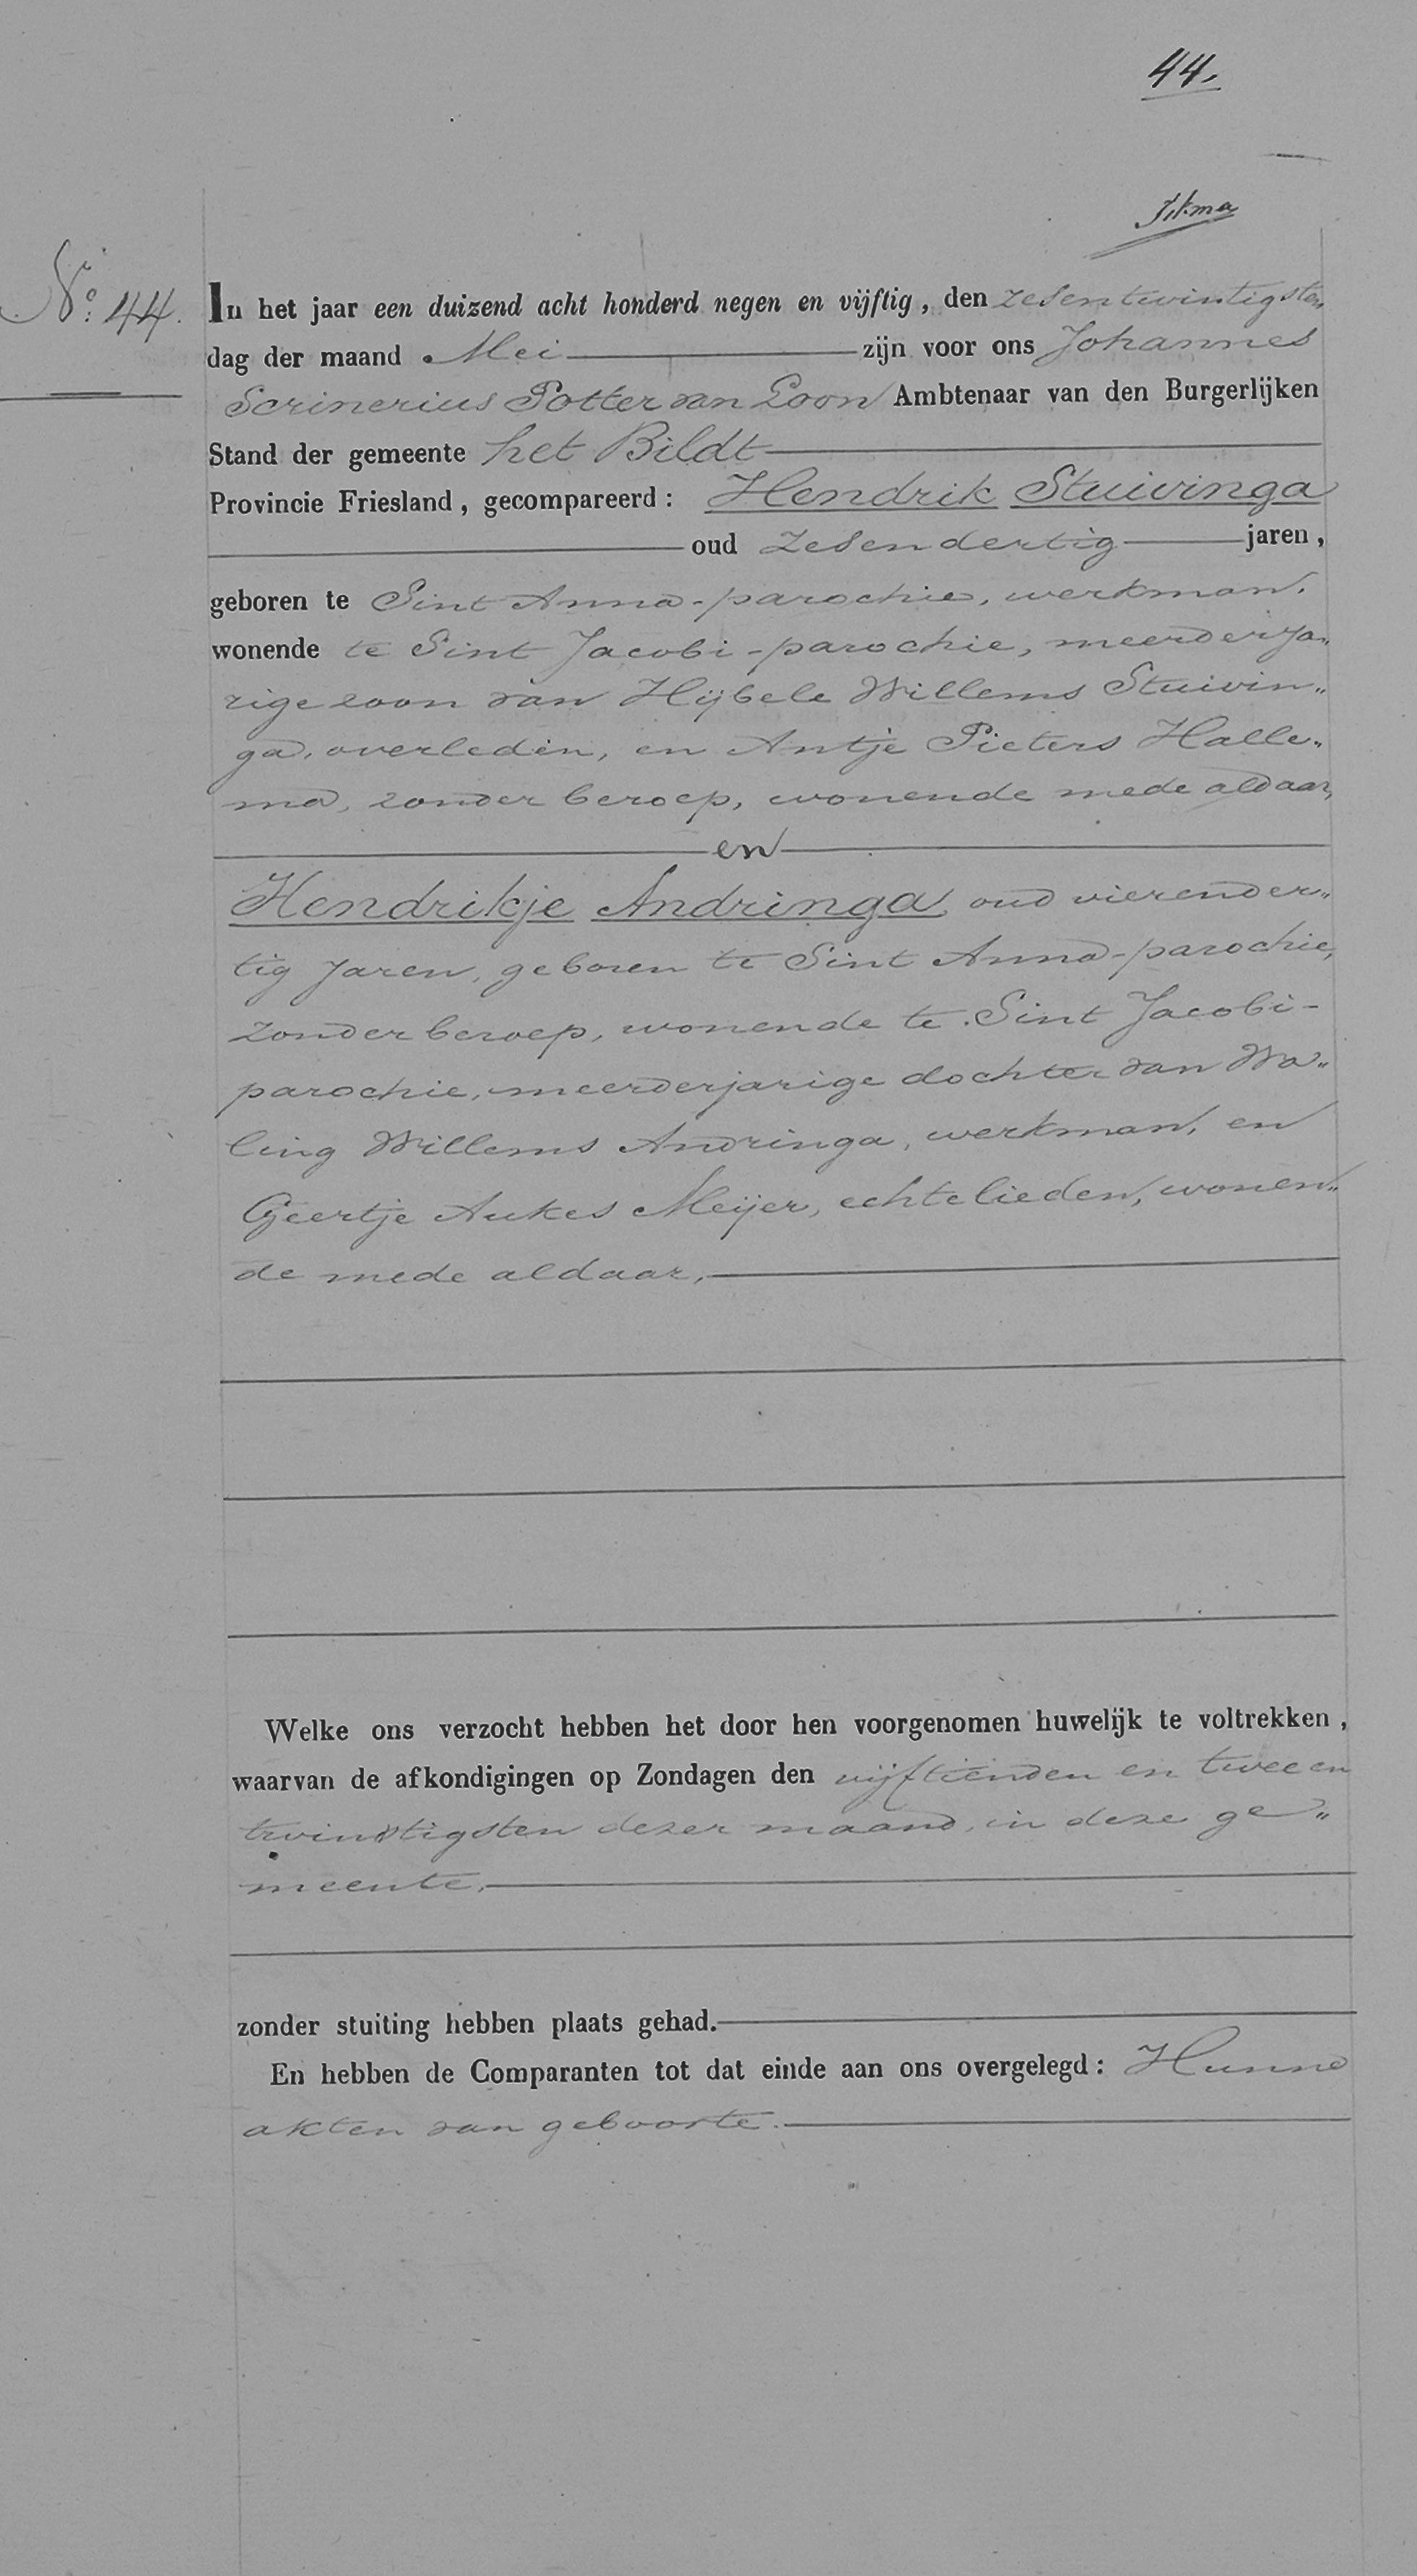 44.
No. 44.
In het jaar een duizend acht honderd negen en vijftig, den zesentwintigsten
dag der maand Mei zijn voor ons Johannes
Scrinerius Potter van Loon Ambtenaar van den Burgerlijken
Stand der gemeente het Bildt
Provincie Friesland, gecompareerd: Hendrik Stuivinga
oud zesendertig jaren,
geboren te Sint Anna-parochie, werkman,
wonende te Sint Jacobi-parochie, meerderja„
rige zoon van Hijbele Willems Stuivin„
ga, overleden, en Antje Pieters Halle„
ma, zonder beroep, wonende mede aldaar,
en
Hendrikje Andringa, oud vierender„
tig jaren, geboren te Sint Anna-parochie,
zonder beroep, wonende te Sint Jacobi-
parochie, meerderjarige dochter van Wa„
ling Willems Andringa, werkman, en
Geertje Aukes Meijer, echtelieden, wonen„
de mede aldaar,
Welke ons verzocht hebben het door hen voorgenomen huwelijk te voltrekken,
waarvan de afkondigingen op Zondagen den vijftienden en twee en
twintigsten dezer maand, in deze ge„
meente,
zonder stuiting hebben plaats gehad.
En hebben de Comparanten tot dat einde aan ons overgelegd: Hunne
akten van geboorte.